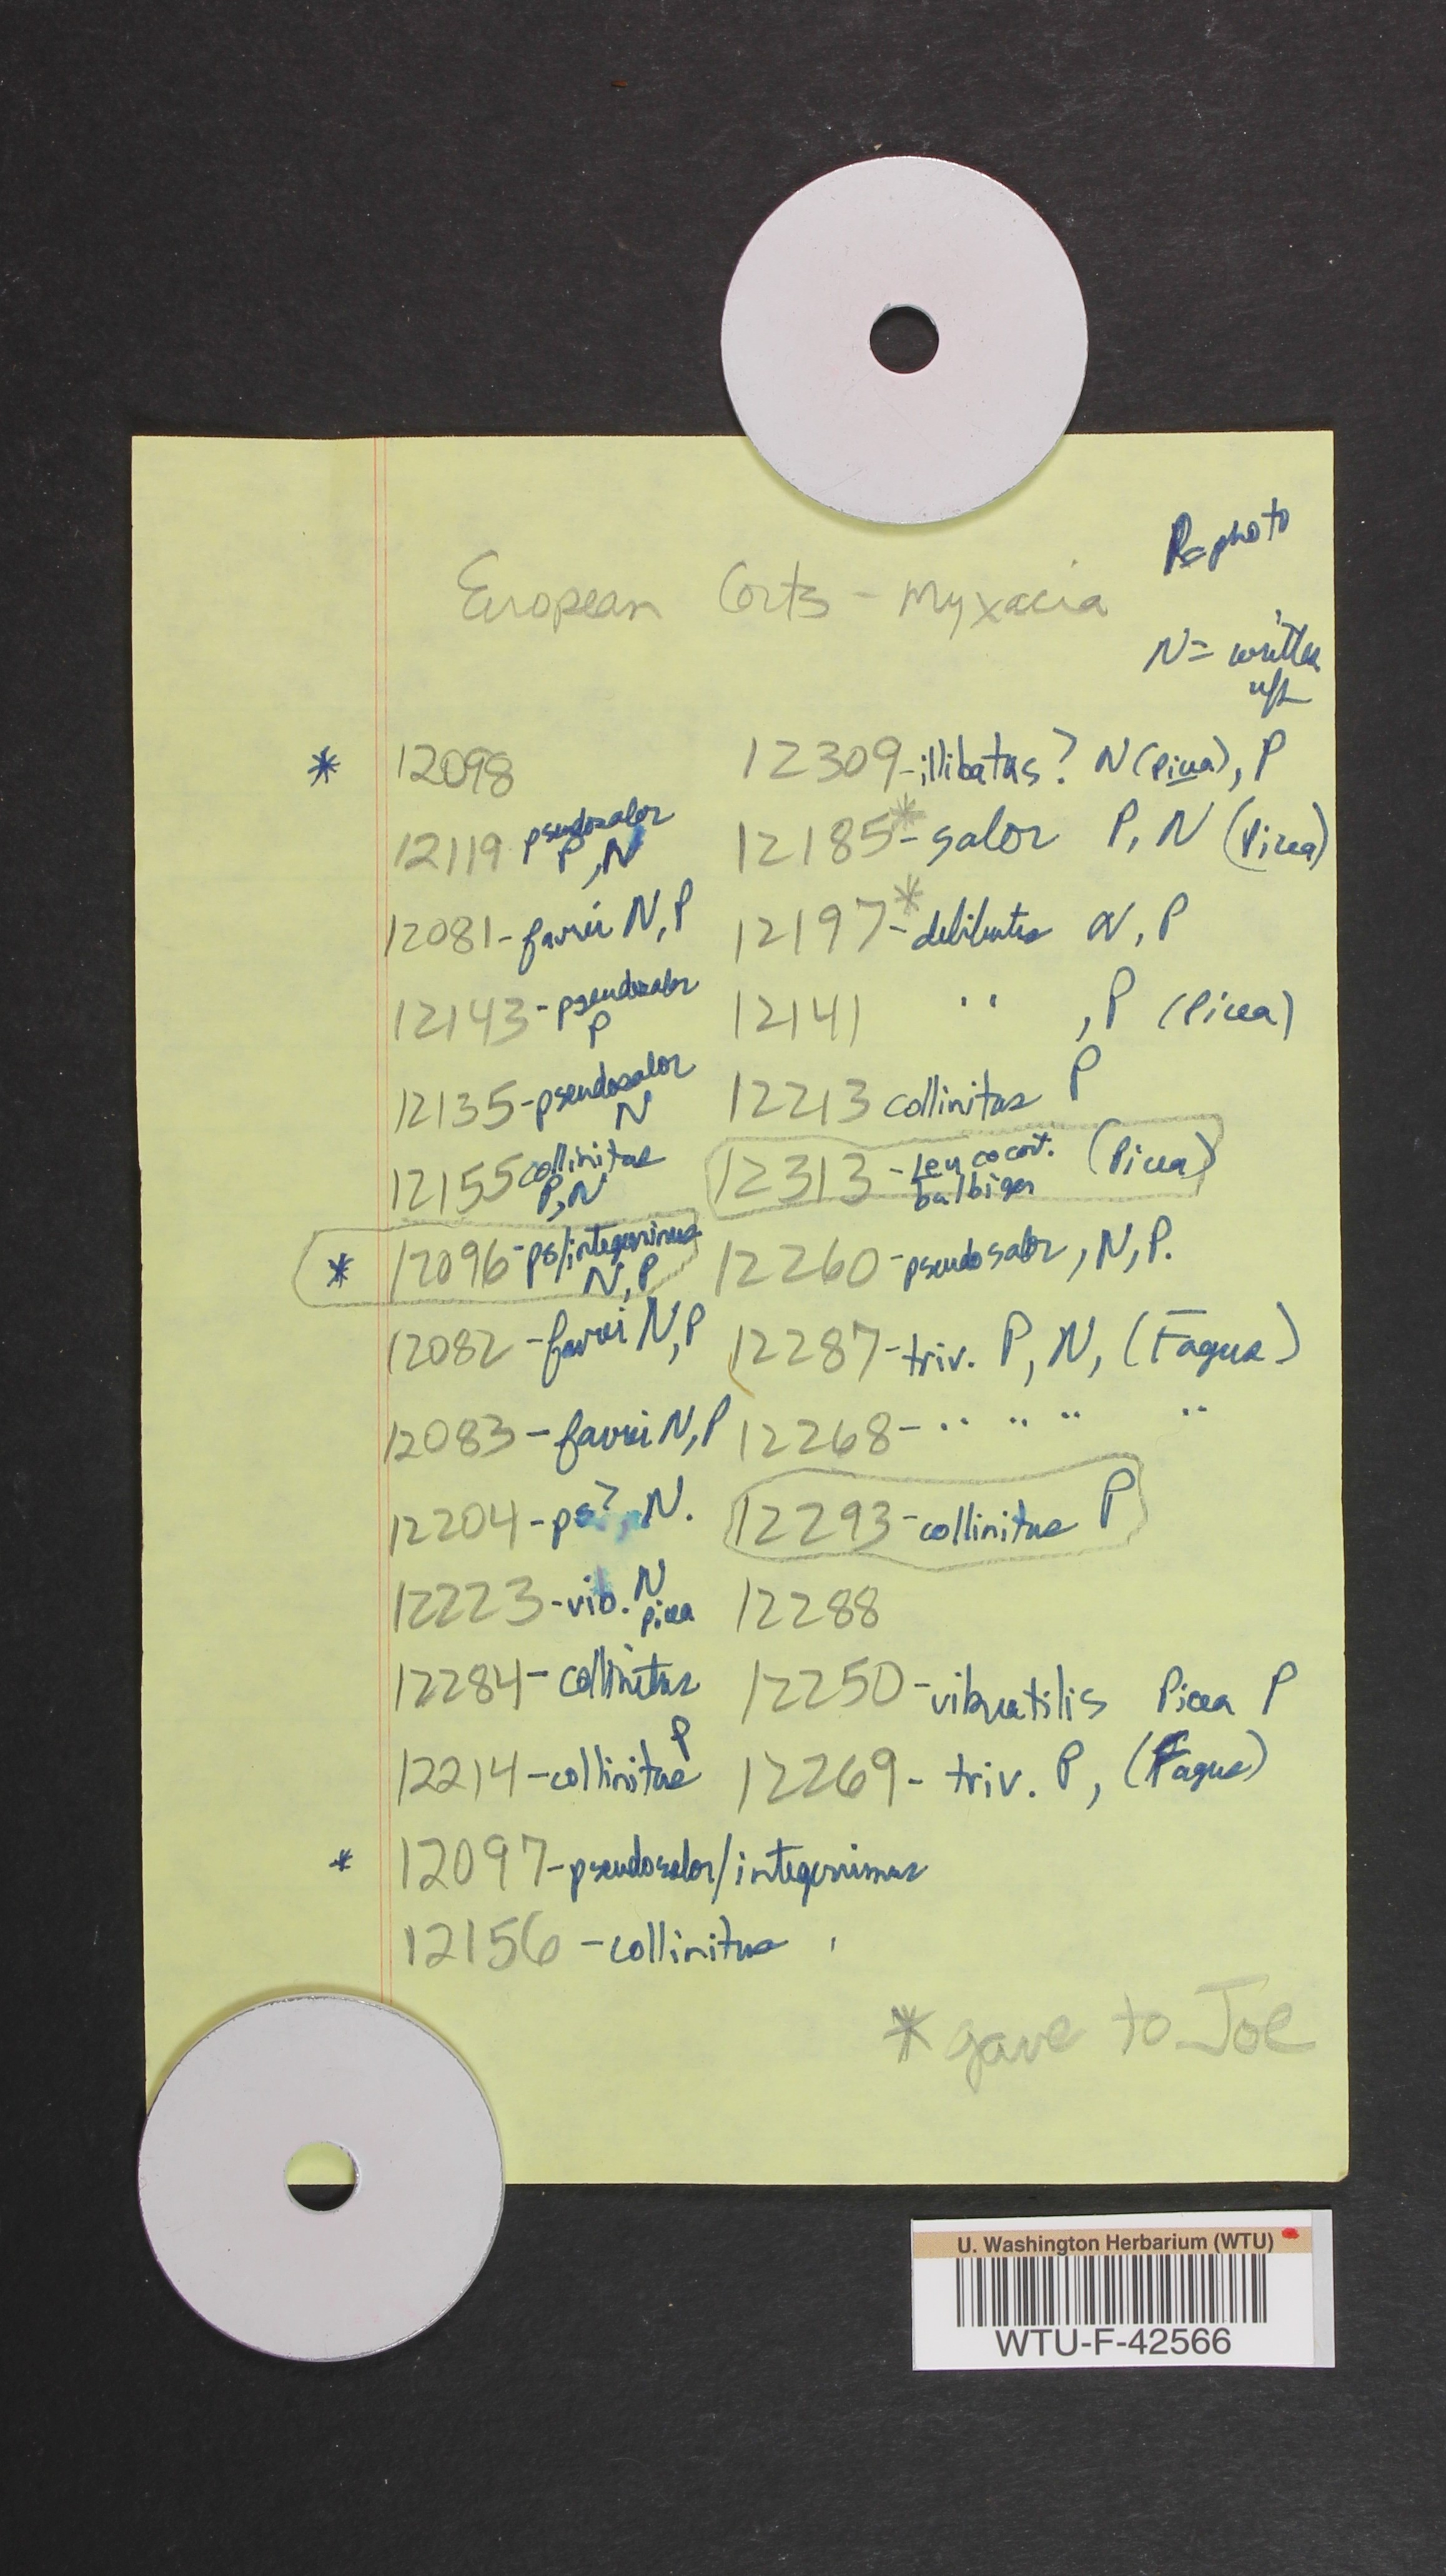 P=photo
European Corts - Myxacia
N= written
up
* 12098
12119 pseudosalor
P, N
12081- favrei N, P
12143- pseudosalor
P
12135- pseudosalor
N
12155 collinitus
P, N
* 12096- ps/integerrimus
N, P
12082 - favrei N, P
12083 - favrei N, P
12204 - ps? N.
12223 - vib. N
picea
12284 - collinitus
12214 - collinitus P
* 12097- pseudosalor/integerrimus
12156 - collinitus
12309- illibatus? N (Picea), P
12185*- salor P, N (Picea)
12197*- delibutus N, P
12141 " , P (Picea)
12213 collinitus P
12313 - leucocort. (Picea)
bulbiger
12260 - pseudosalor, N, P.
12287- triv. P, N, (Fagus)
12268- " " " "
12293- collinitus P
12288
12250 - vibratilis Picea P
12269 - triv. P, (Fagus)
* gave to Joe
U. Washington Herbarium (WTU)
WTU-F-42566